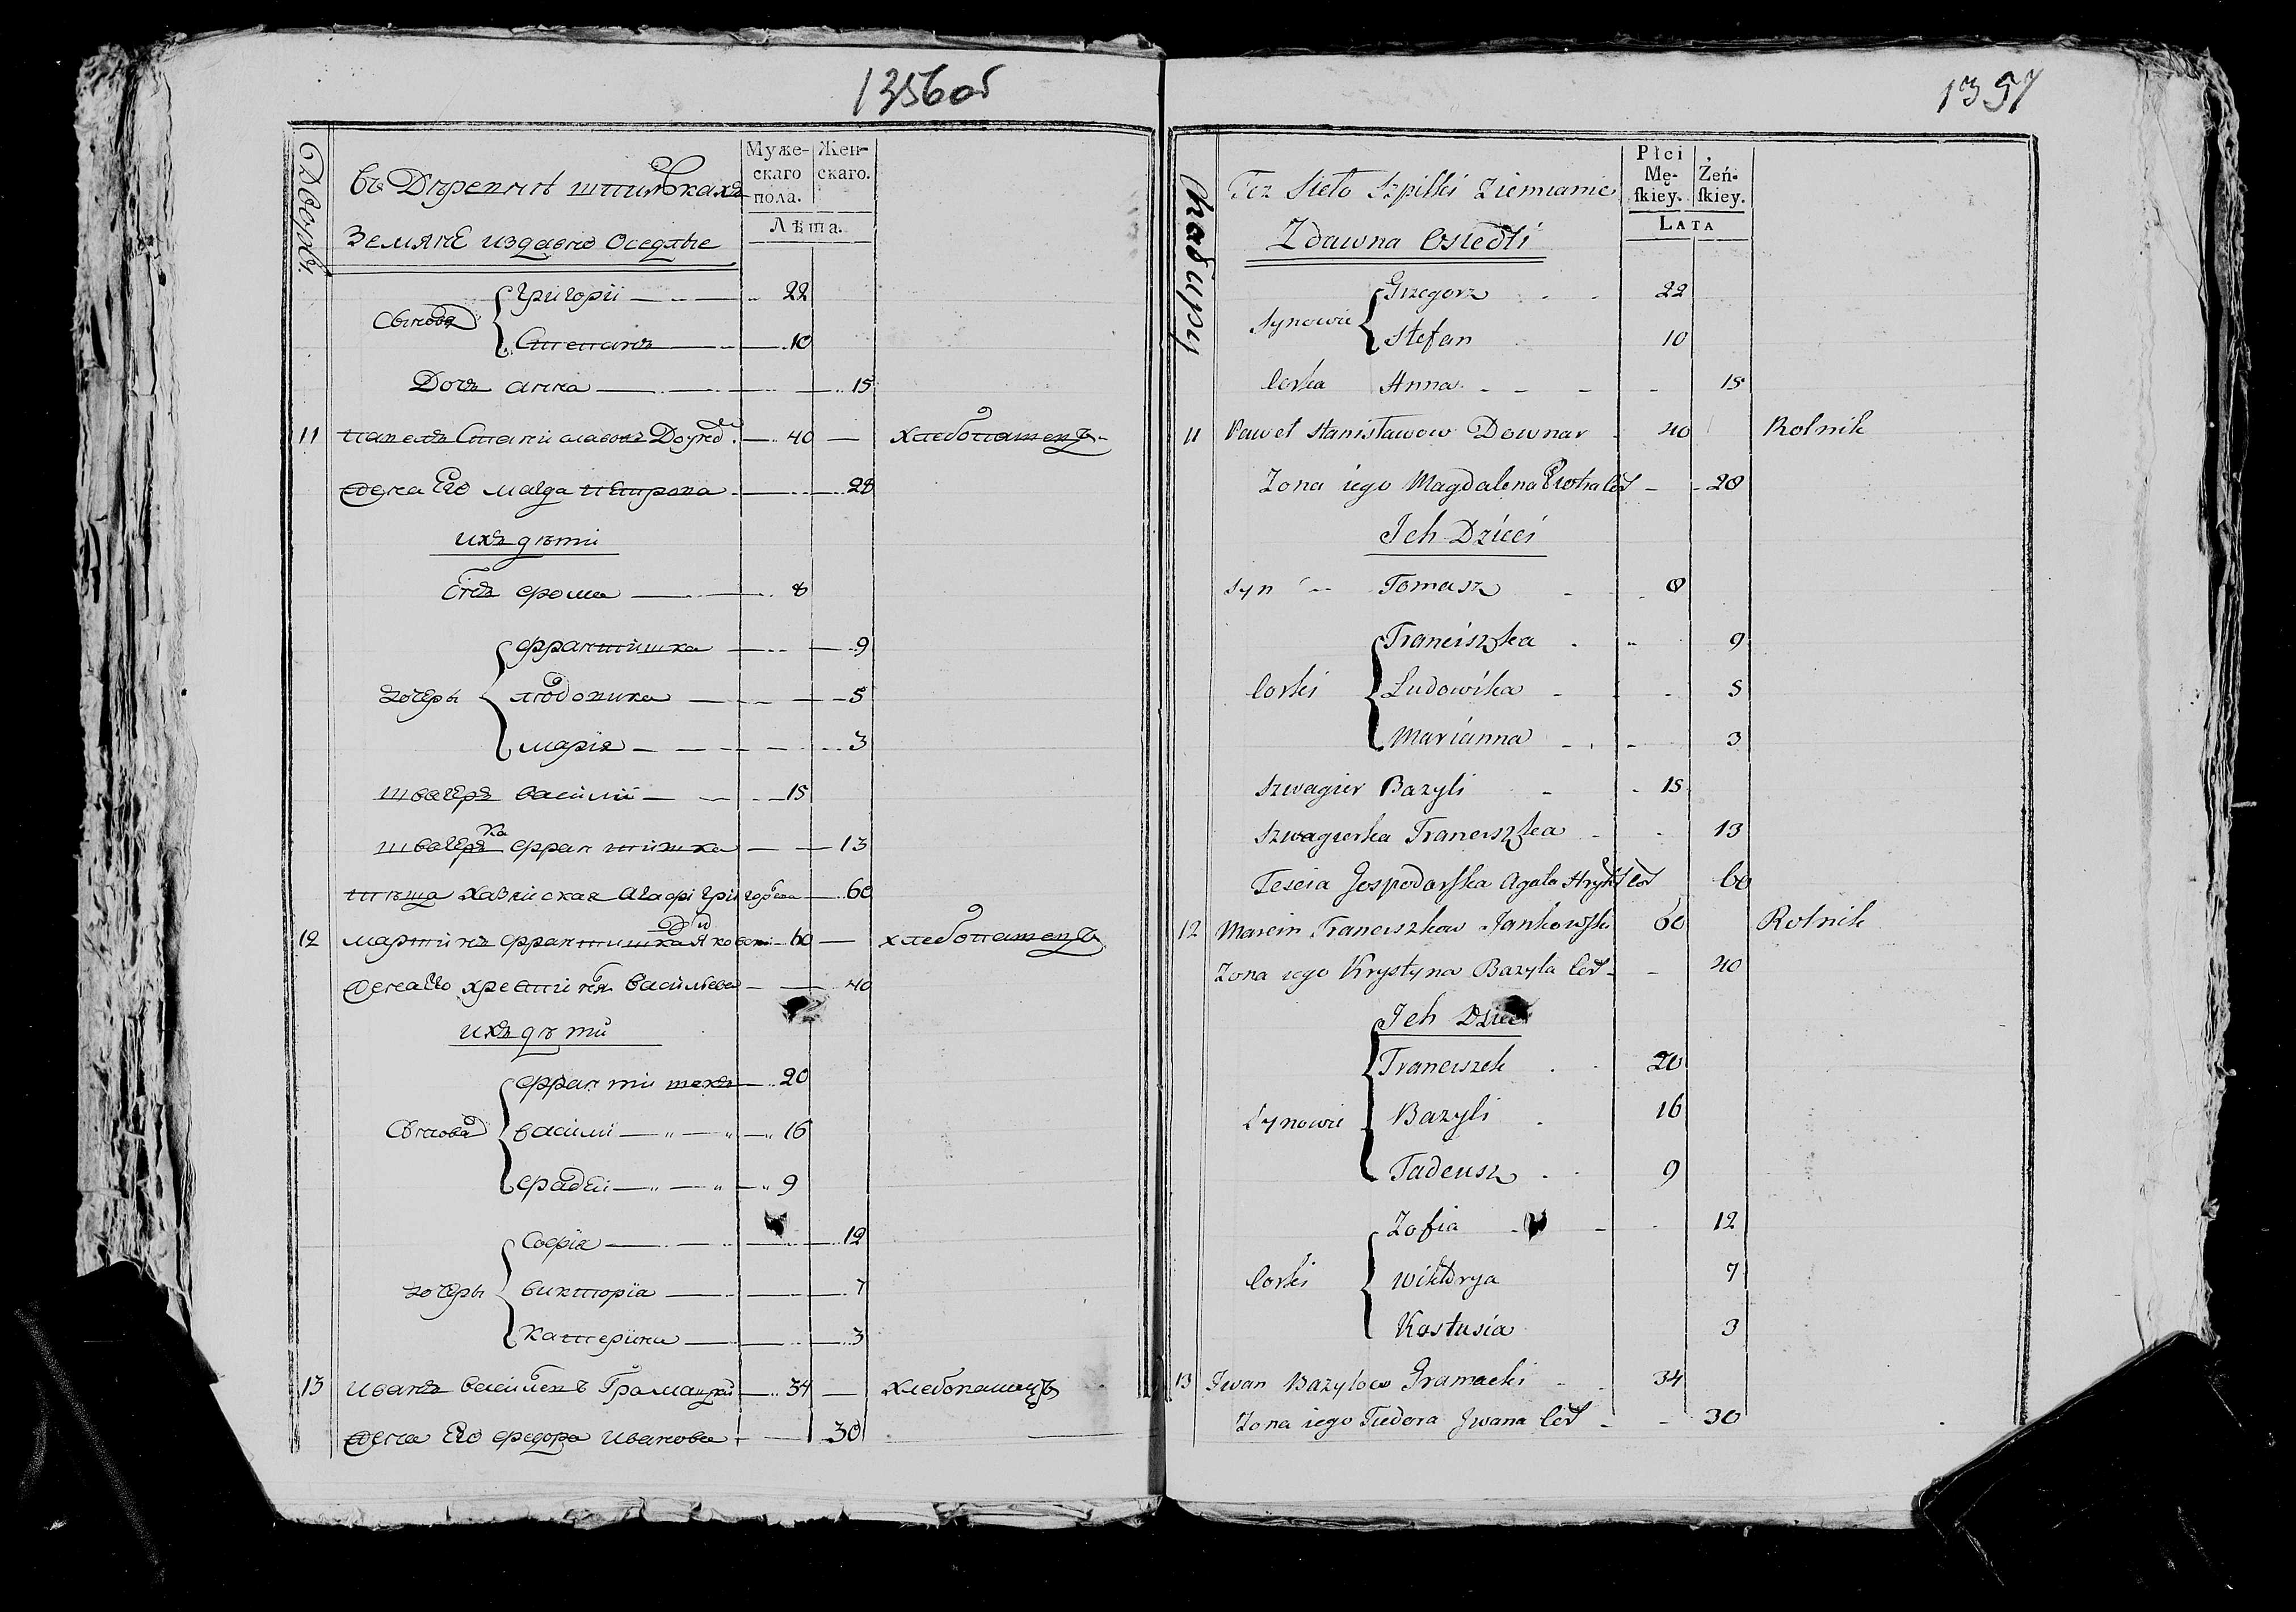 1356об
Дворы.
въ Деревнѣ шпилькахъ
Земляне издавно Оседлые
Муже-скаго пола.
Жен-скаго.
Лѣта.
Сыновя { Григорій 22
Степанъ 10
Дочь анна 15
11 павелъ Станиславовъ 40 хлебопашецъ
жена Его магда 28
ихъ дѣти
Сынъ фома 8
дочеры { францишка 9
людовика 5
марія 3
швагеръ василій 15
швагерка францишка 13
тѣща 60
12 мартинъ францишка 60 хлебопашецъ
жена Его Васильева 40
ихъ дѣти
Сыновя { францишекъ 20
василій 16
фадей 9
дочеры { Софія 12
викторія 7
катерина 3
13 иванъ Грамацкій 34 хлебопашецъ
жена Его федора иванова 30
1357
Chałupy
Też Sieło Szpilki Ziemianie
Zdawna Osiedli
Płci Mę-skiey.
Żeń-skiey.
LATA
Synowie { Grzegorz 22
Stefan 10
Corka Anna 15
11 Paweł Stanisławow Downar 40 Rolnik
Zona iego Magdalena 28
Ich Dzieci
Syn Tomasz 8
Corki { Franciszka 9
Ludowika 5
Marianna 3
Szwagier Bazyli 15
Szwagierka Franciszka 13
Teścia Gospodarska Agata 60
12 Marcin Franciszkow Jankowski 60 Rolnik
Zona iego Krystyna Bazyla Cor 40
Ich Dziec
Synowie { Franciszek 20
Bazyli 16
Tadeusz 9
Corki { Zofia 12
Wiktorya 7
Kostusia 3
13 Iwan Bazylow Gramacki 34
Zona iego Fiedora Iwana Cor 30